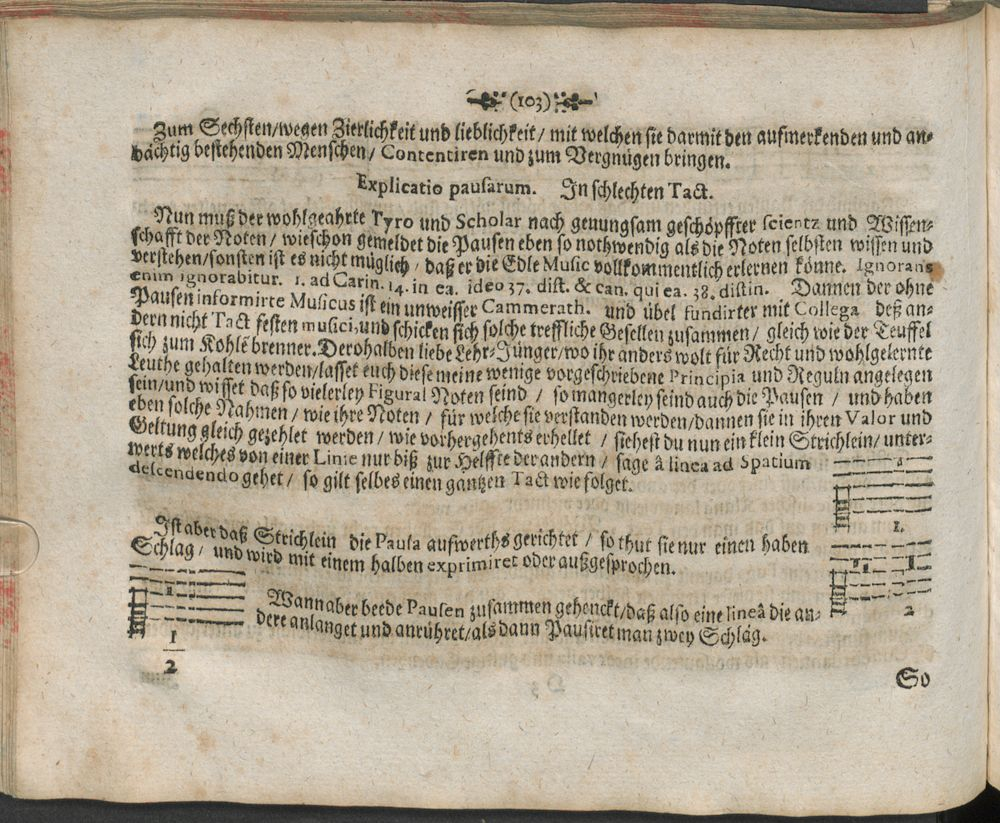 (103)
Zum Sechsten/wegen Zierlichkeit und lieblichkeit/ mit welchen sie darmit den aufmerkenden und an-
dächtig bestehenden Menschen/ Contentiren und zum Vergnügen bringen.
Explicatio pausarum. In schlechten Tact.
Nun muß der wohlgeahrte Tyro und Scholar nach genungsam geschöpffter scientz und Wissen-
schafft der Noten/ wieschon gemeldet die Pausen eben so nothwendig als die Noten selbsten wissen und
verstehen/sonsten ist es nicht müglich/ daß er die Edle Music vollkommentlich erlernen könne. Ignorans
enim ignorabitur. 1. ad Carin. 14. in ea. ideo 37. dist. & can. qui ea. 38. distin. Dannen der ohne
Pausen informirte Musicus ist ein unweisser Cammerath. und übel fundirter mit Collega deß an-
dern nicht Tact festen musici, und schicken sich solche treffliche Gesellen zusammen/ gleich wie der Teuffel
sich zum Kohlẽ brenner. Derohalben liebe Lehr-Jünger/wo ihr anders wolt für Recht und wohlgelernte
Leuthe gehalten werden/lasset euch diese meine wenige vorgeschriebene Principia und Reguln angelegen
sein/und wisset daß so vielerley Figural Noten seind / so mangerley seind auch die Pausen / und haben
eben solche Nahmen / wie ihre Noten / für welche sie verstanden werden/dannen sie in ihren Valor und
Geltung gleich gezehlet werden / wie vorhergehents erhellet / siehest du nun ein klein Strichlein/ unter-
werts welches von einer Linie nur biß zur Helffte der andern / sage â linea ad Spatium
descendendo gehet / so gilt selbes einen gantzen Tact wie folget.
1.
Ist aber daß Strichlein die Pausa aufwerths gerichtet / so thut sie nur einen haben
Schlag / und wird mit einem halben exprimiret oder außgesprochen.
2
Wann aber beede Pausen zusammen gehenckt/daß also eine lineâ die an-
dere anlanget und anrühret/als dann Pausiret man zwey Schläg.
1
2
So